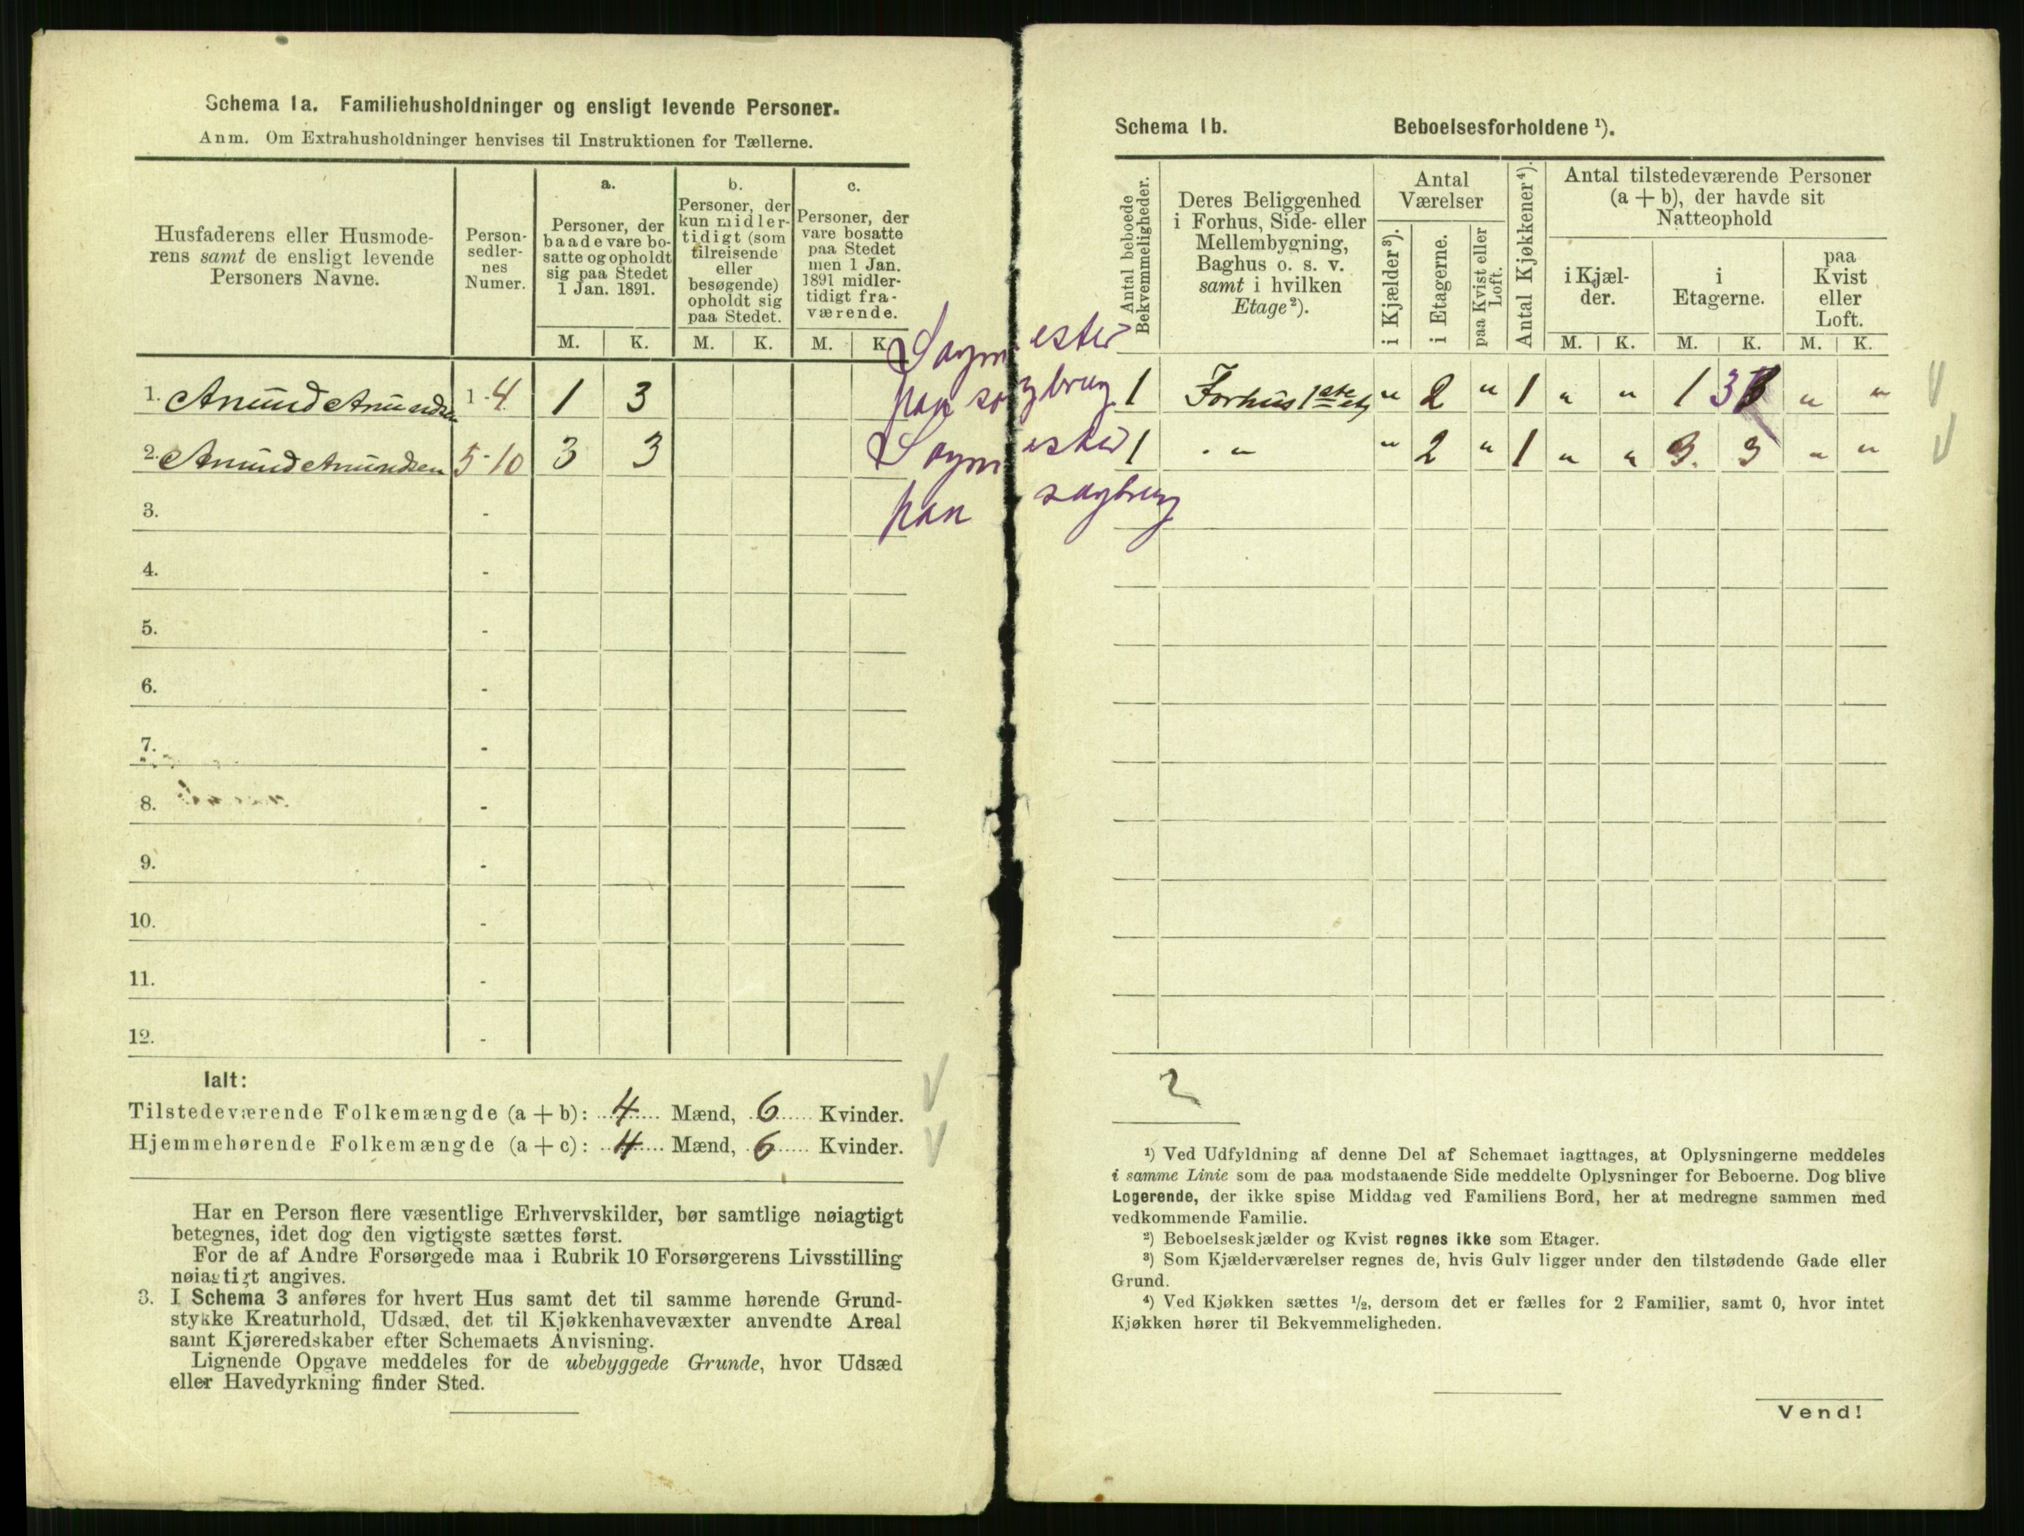 Schema 1a. Familiehusholdninger og ensligt levende Personer.
Anm. Om Extrahusholdninger henvises til Instruktionen for Tællerne.
Husfaderens eller Husmode-
rens samt de ensligt levende
Personers Navne.
Person-
sedler-
nes
Numer.
a.
Personer, der
baade vare bo-
satte og opholdt
sig paa Stedet
1 Jan. 1891.
b.
Personer, der
kun midler-
tidigt (som
tilreisende
eller
besøgende)
opholdt sig
paa Stedet.
c.
Personer, der
vare bosatte
paa Stedet
men 1 Jan.
1891 midler-
tidigt fra-
værende.
M. K. M. K. M. K.
1. Amund Amundsen 1-4 1 3
2. Amund Amundsen 5-10 3 3
3. -
4. -
5. -
6. -
7. -
8. -
9. -
10. -
11. -
12. -
Sagmester
paa sagbrug
Sagmester
paa sagbrug
Ialt:
Tilstedeværende Folkemængde (a + b): 4 Mænd, 6 Kvinder.
Hjemmehørende Folkemængde (a + c): 4 Mænd, 6 Kvinder.
Har en Person flere væsentlige Erhvervskilder, bør samtlige nøiagtigt
betegnes, idet dog den vigtigste sættes først.
For de af Andre Forsørgede maa i Rubrik 10 Forsørgerens Livsstilling
nøiagtigt angives.
3. I Schema 3 anføres for hvert Hus samt det til samme hørende Grund-
stykke Kreaturhold, Udsæd, det til Kjøkkenhavevæxter anvendte Areal
samt Kjøreredskaber efter Schemaets Anvisning.
Lignende Opgave meddeles for de ubebyggede Grunde, hvor Udsæd
eller Havedyrkning finder Sted.
Schema 1b. Beboelsesforholdene ¹).
Antal beboede
Bekvemmeligheder.
Deres Beliggenhed
i Forhus, Side- eller
Mellembygning,
Baghus o. s. v.
samt i hvilken
Etage²).
Antal
Værelser
i Kjælder³).
i Etagerne.
paa Kvist eller
Loft.
Antal Kjøkkener⁴).
Antal tilstedeværende Personer
(a + b), der havde sit
Natteophold
i Kjæl-
der.
i
Etagerne.
paa
Kvist
eller
Loft.
M. K. M. K. M. K.
1 Forhus 1ste et. „ 2 „ 1 „ „ 1 3 „ „
1 - „ - „ 2 „ 1 „ „ 3. 3 „ „
2
¹) Ved Udfyldning af denne Del af Schemaet iagttages, at Oplysningerne meddeles
i samme Linie som de paa modstaaende Side meddelte Oplysninger for Beboerne. Dog blive
Logerende, der ikke spise Middag ved Familiens Bord, her at medregne sammen med
vedkommende Familie.
²) Beboelseskjælder og Kvist regnes ikke som Etager.
³) Som Kjælderværelser regnes de, hvis Gulv ligger under den tilstødende Gade eller
Grund.
⁴) Ved Kjøkken sættes ¹/₂, dersom det er fælles for 2 Familier, samt 0, hvor intet
Kjøkken hører til Bekvemmeligheden.
Vend!